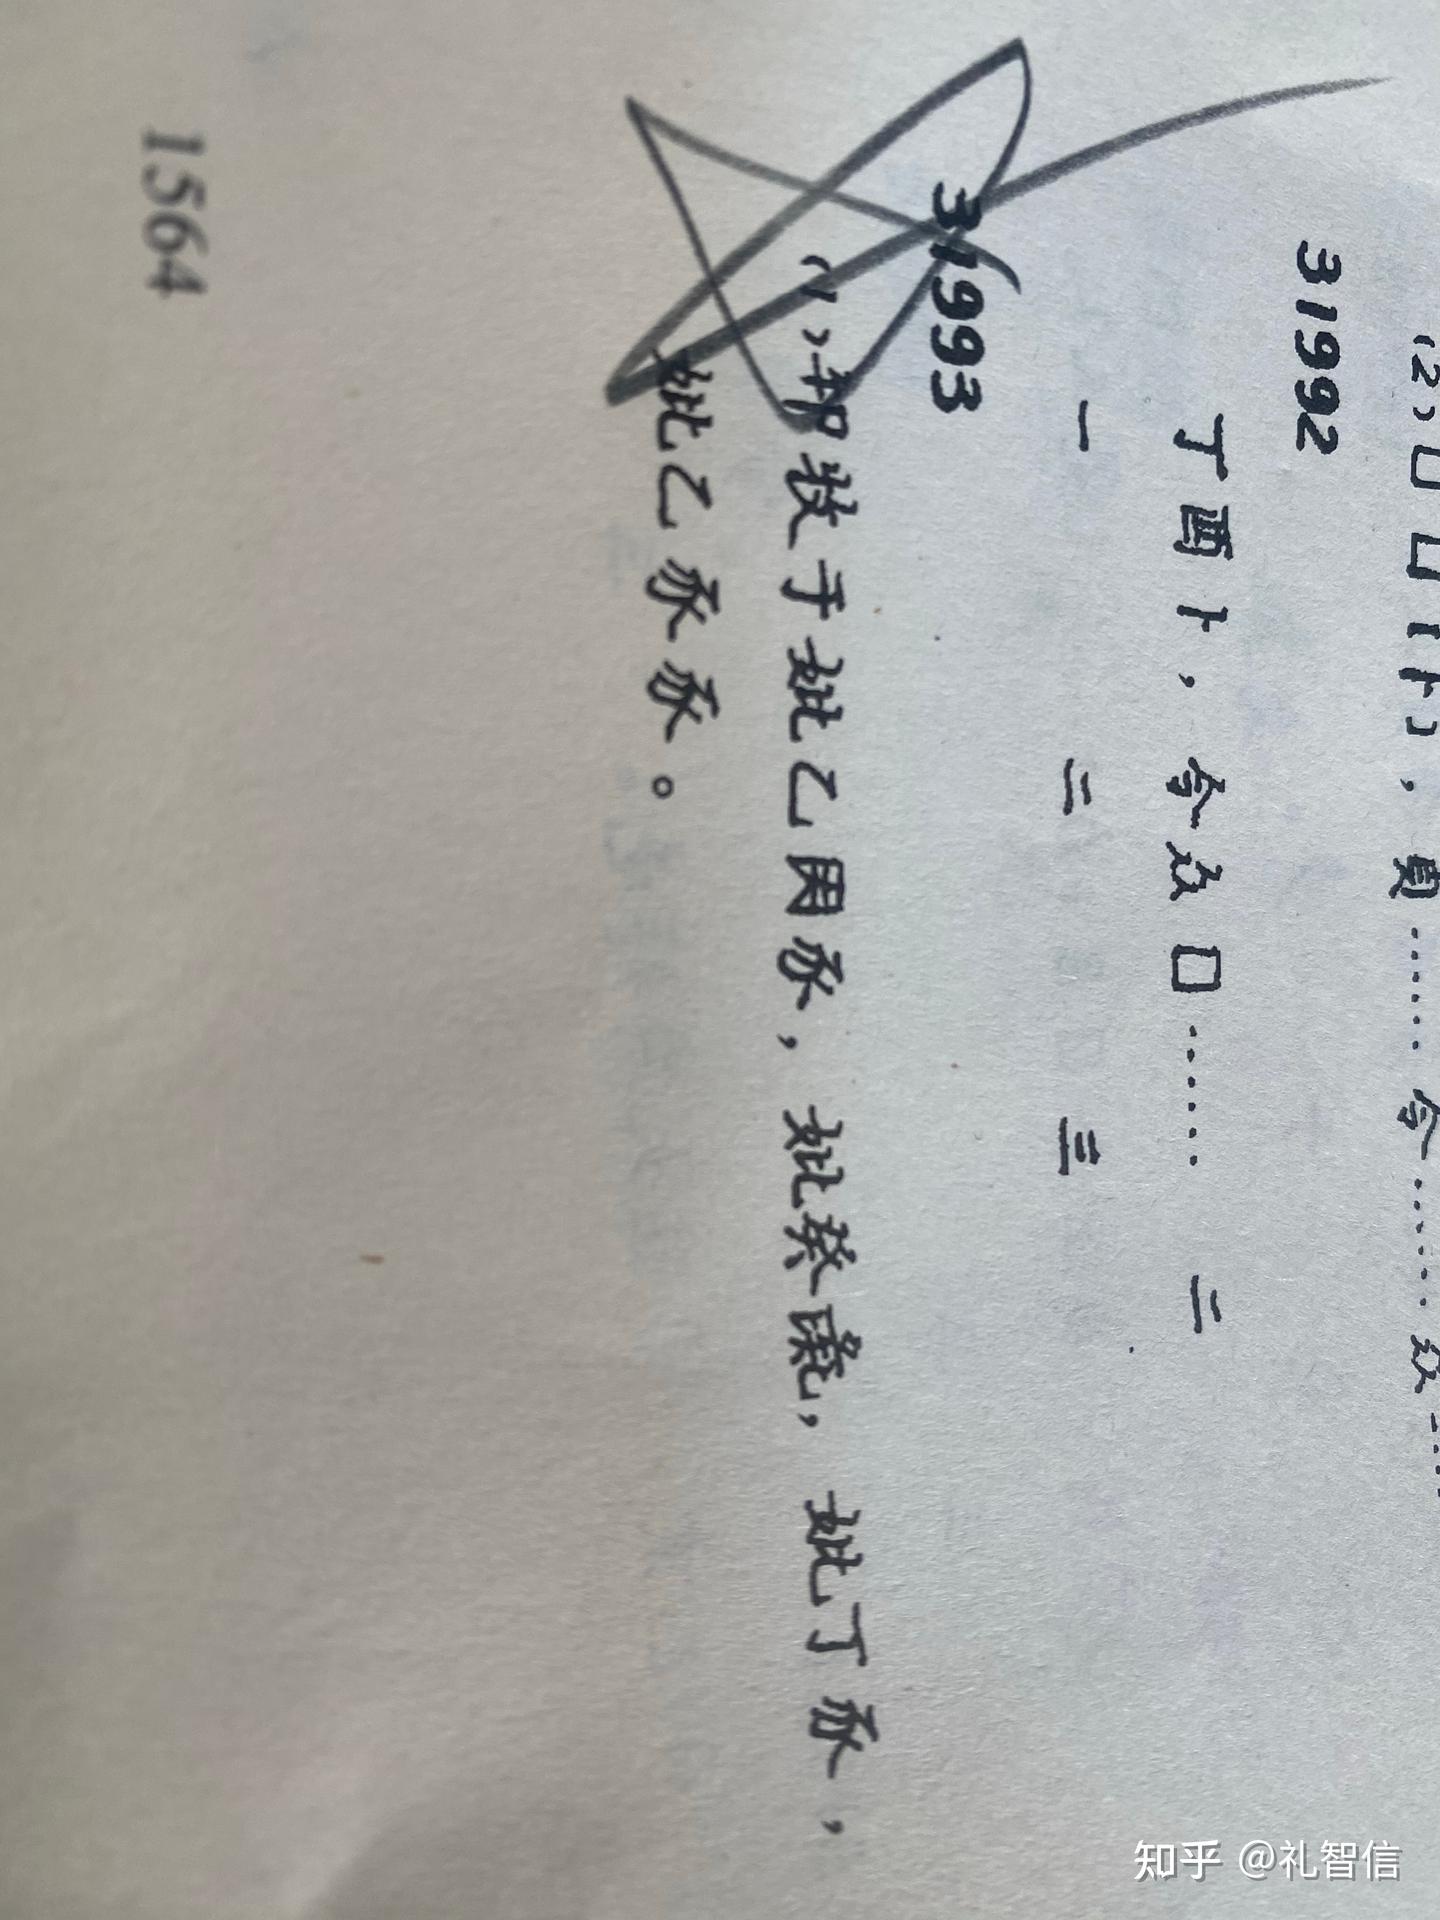 (2)□□〔卜〕,貞……今……
31992
丁酉卜,今众□…… 二
一 二 三
31993
(1) 于妣乙 豕,妣癸 ,妣丁豕,
妣乙豕豕。
1564
知乎 @礼智信